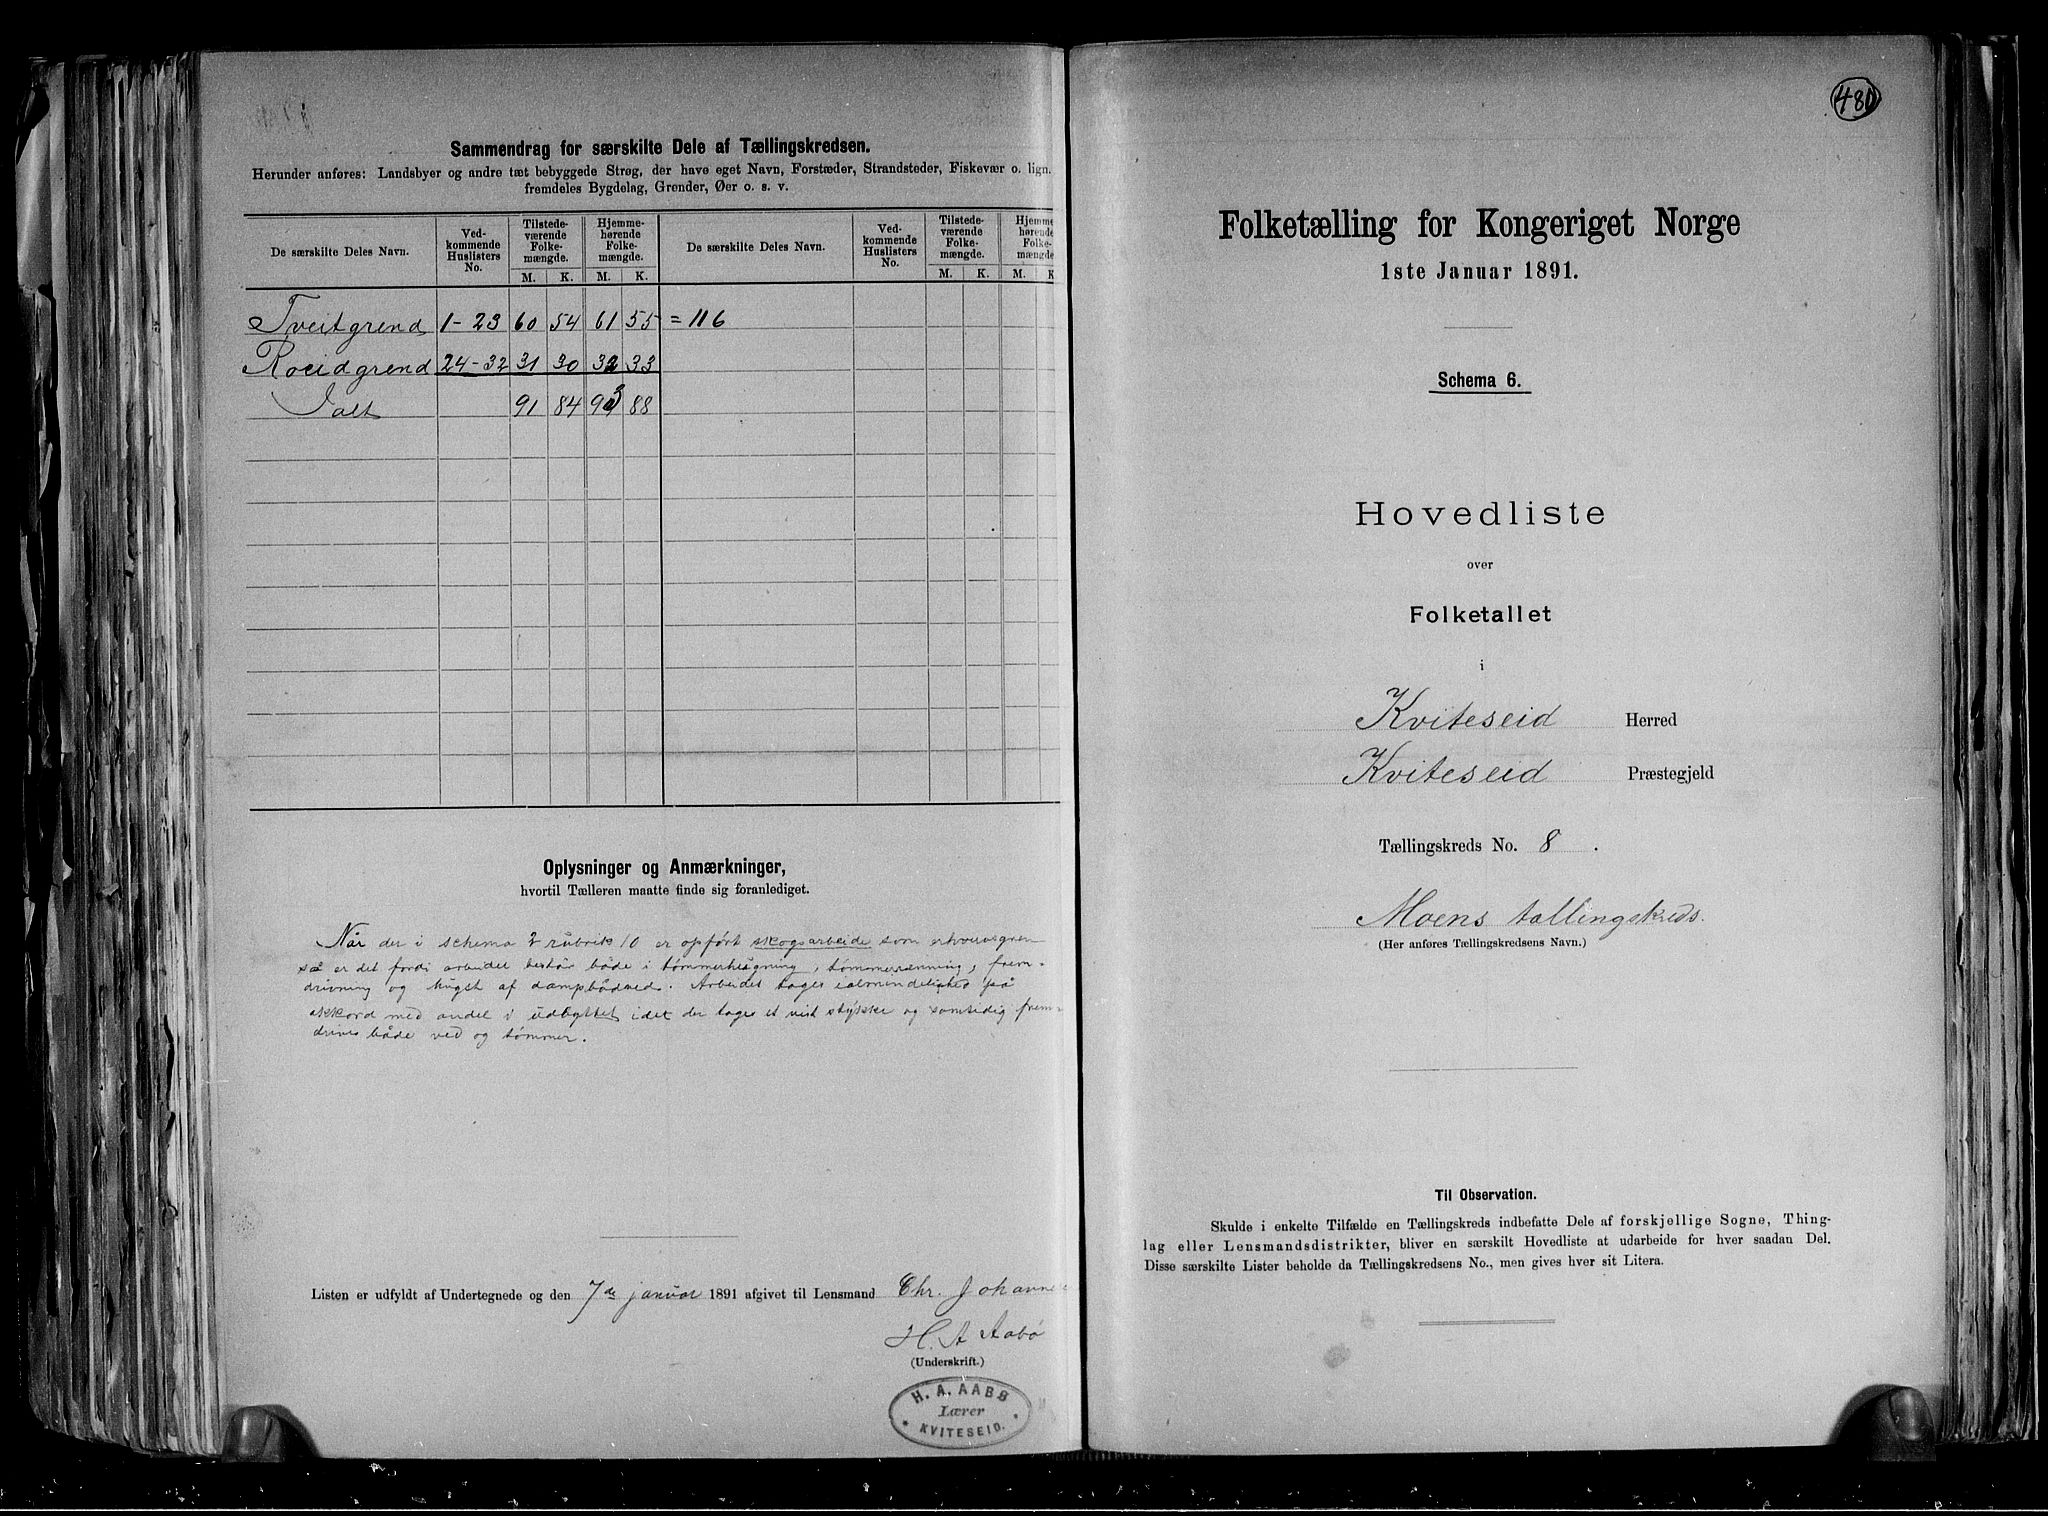 Sammendrag for særskilte Dele af Tællingskredsen.
Herunder anføres: Landsbyer og andre tæt bebyggede Strøg, der have eget Navn, Forstæder, Strandsteder, Fiskevær o. lign.
fremdeles Bygdelag, Grender, Øer o. s. v.
De særskilte Deles Navn. Ved-kommende Huslisters No. Tilstede-værende Folke-mængde. Hjemme-hørende Folke-mængde. De særskilte Deles Navn. Ved-kommende Huslisters No. Tilstede-værende Folke-mængde. Hjemme-hørende Folke-mængde.
M. K. M. K. M. K. M. K
Tveitgrend 1-23 60 54 61 55 = 116
Roeidgrend 24-32 31 30 32 33
Ialt 91 84 93 88
Oplysninger og Anmærkninger,
hvortil Tælleren maatte finde sig foranlediget.
Når der i schema 2 rubrik 10 er opført skogsarbeide som erhvervsgren
så er det fordi arbeidet består både i tømmerhugning, tømmerrenning, frem-
drivning og hugst af dampbådved. Arbeidet tages ialmindelighed på
akkord med andel i udbyttet idet der tages et vist stykke og samtidig frem-
drives både ved og tømmer.
Listen er udfyldt af Undertegnede og den 7de januar 1891 afgivet til Lensmand Chr. Johanne
H. A Aabø
(Underskrift.)
H. A. AABØ
Lærer
KVITESEID.
480
Folketælling for Kongeriget Norge
1ste Januar 1891.
Schema 6.
Hovedliste
over
Folketallet
i
Kviteseid Herred
Kviteseid Præstegjeld
Tællingskreds No. 8 .
Moens tællingskreds.
(Her anføres Tællingskredsens Navn.)
Til Observation.
Skulde i enkelte Tilfælde en Tællingskreds indbefatte Dele af forskjellige Sogne, Thing-
lag eller Lensmandsdistrikter, bliver en særskilt Hovedliste at udarbeide for hver saadan Del.
Disse særskilte Lister beholde da Tællingskredsens No., men gives hver sit Litera.